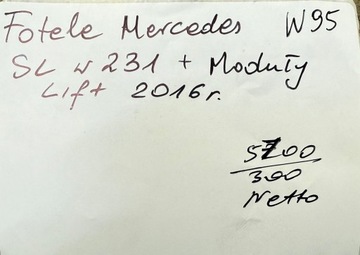 Fotele Mercedes W95
SL w 231 + Moduły
Lift 2016r.
5700
300
Netto